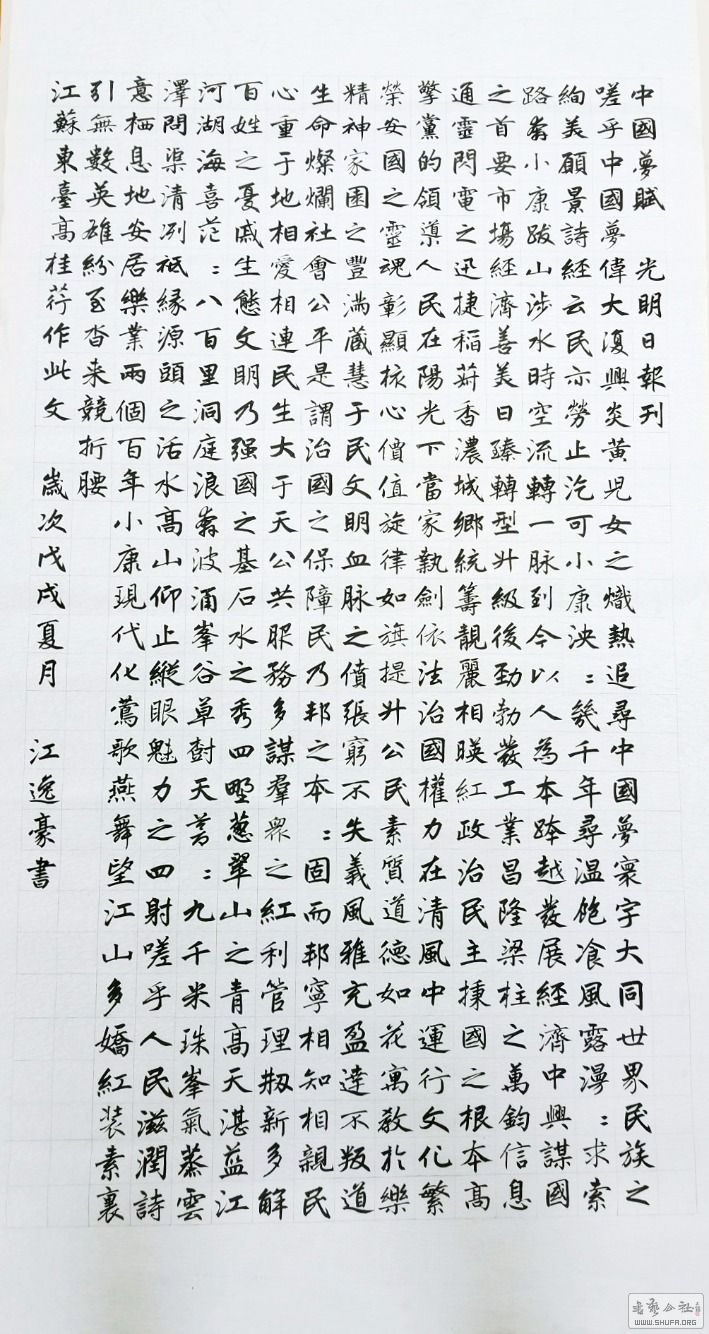 中國夢賦 光明日報刊
嗟乎中國夢偉大復興炎黃兒女之熾熱追尋中國夢寰宇大同世界民族之
絢美願景詩經云民亦勞止汔可小康泱:幾千年尋温飽飡風露漫:求索
路奔小康跋山涉水時空流轉一脉到今以人為本跨越發展經濟中興謀國
之首要市場經濟善美日臻轉型升級後勁勃發工業昌隆梁柱之萬鈞信息
通靈閃電之迅捷稻菽香濃城鄉統籌靚麗相暎紅政治民主揀國之根本高
擎黨的領導人民在陽光下當家執劍依法治國權力在清風中運行文化繁
榮安國之靈魂彰顯核心價值旋律如旗提升公民素質道德如花寓教於樂
精神家園之豐满蔵慧于民文明血脉之僨張窮不失義風雅充盈達不叛道
生命燦爛社會公平是謂治國之保障民乃邦之本:固而邦寧相知相親民
心重于地相愛相連民生大于天公共服務多謀羣衆之紅利管理剏新多解
百姓之憂戚生態文明乃强國之基石水之秀四野葱翠山之青高天湛蓝江
河湖海喜范:八百里洞庭浪奔波涌峯谷草樹天:九千米珠峯氣蒸雲
澤問渠清冽祗緣源頭之活水高山仰止縱眼魅力之四射嗟乎人民滋潤詩
意栖息地安居樂業兩個百年小康現代化鶯歌燕舞望江山多嬌紅装素裹
引無數英雄紛至沓来競折腰
江蘇東臺高桂荇作此文 歲次戊戌夏月
江逸豪書
書藝公社
WWW.SHUFA.ORG